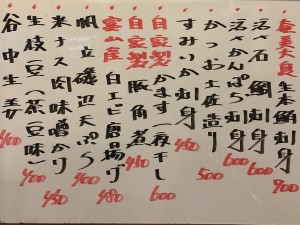 奄美大島 生本鮪刺身 900
活〆石鯛刺身 600
活〆かんぱち刺身 600
かつお土佐造り 500
すみいか刺身 450
自家製 かます一夜干し 600
自家製 豚角煮 450
富山産 白エビ唐揚げ 480
帆立磯辺天ぷら 400
米ナス肉味噌がけ 450
生枝豆(茶豆味) 400
谷中生姜 400